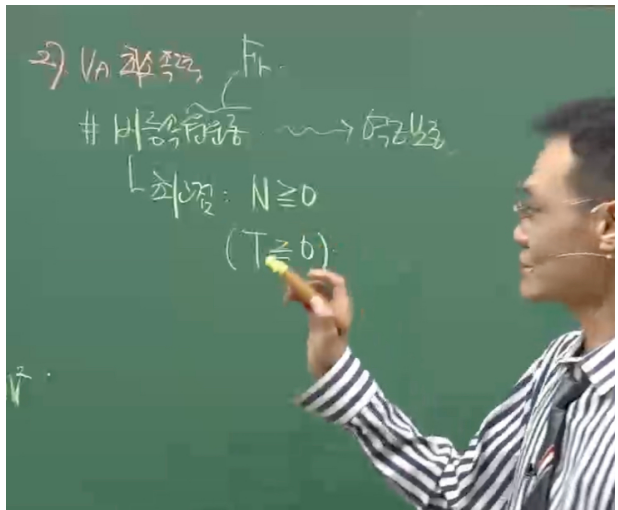 2). V_A 최소속력
F_r.
# 비등속원운동 ⟿ 역학적E보존
└ 최고점 : N ≧ 0
(T ≧ 0)
v²